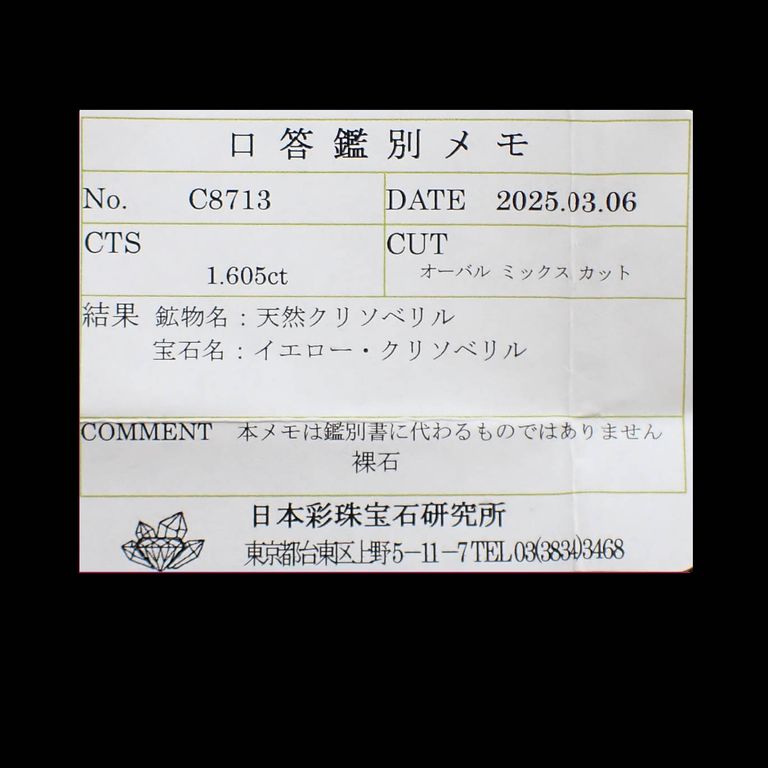 口答鑑別メモ
No. C8713 DATE 2025.03.06
CTS CUT
1.605ct オーバル ミックス カット
結果 鉱物名：天然クリソベリル
宝石名：イエロー・クリソベリル
COMMENT 本メモは鑑別書に代わるものではありません
裸石
日本彩珠宝石研究所
東京都台東区上野5－11－7 TEL 03(3834)3468